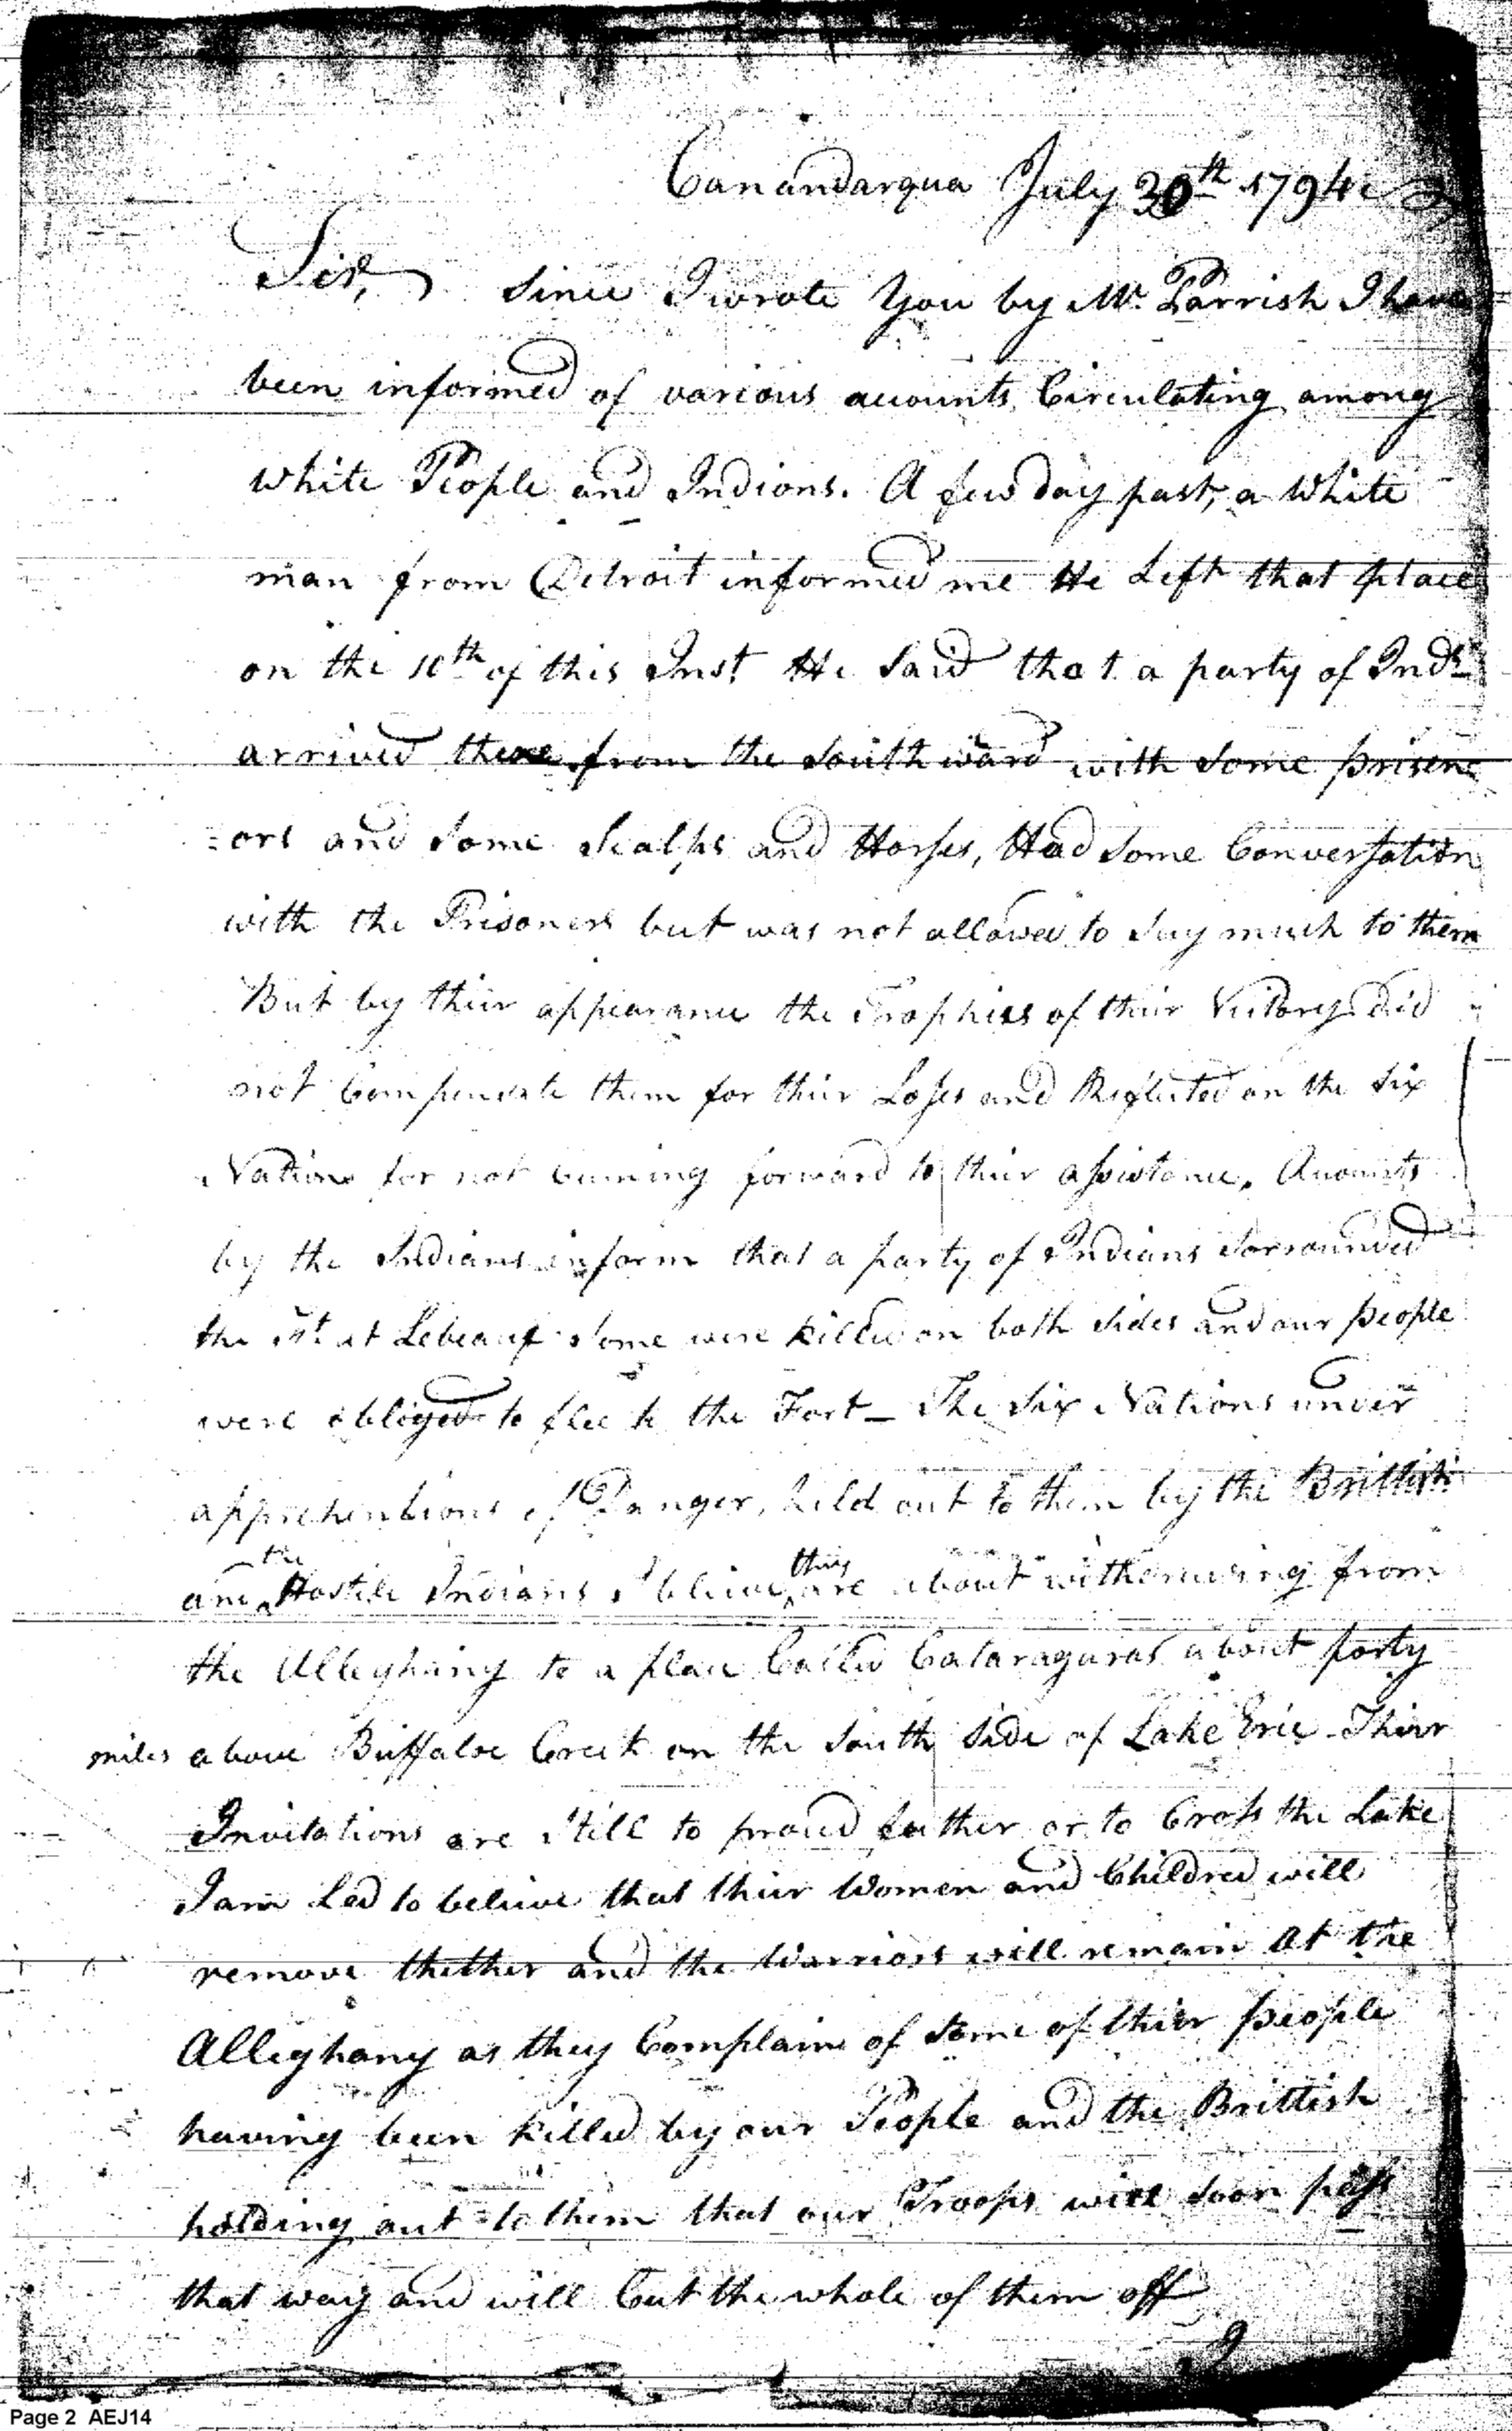 Canandarqua July 30th 1794
Sir, Since I wrote You by Mr. Parrish I have
been informed of various accounts Circulating among
white People and Indions. A few day past, a White
man from Detroit informed me He Left that place
on the 10th of this Inst. He Said that a party of Inds
arrived there from the Southward with Some prisen
=ors and Some Scalps and Horses, Had Some Conversation
with the Prisoners but was not allowed to Say much to them
But by thier appearance the Trophies of their Victory did
not Compensate them for thier Loses and Reflected on the Six
Nations for not cuming forward to thier assistance. Accounts
by the Indians inform that a party of Indians Sorrounded
the at Lebeauf Some were killed on both Sides and our people
were obliged to flee to the Fort - The Six Nations under
apprehentions of Danger, held out to them by the Brittish
and the Hostile Indians I blieve they are about withdrawing from
the Alleghany to a place Called Cataragaras about forty
miles above Buffaloe Creek on the South Side of Lake Erie - Thier
Invitations are Still to proceed father or to Cross the Lake
I am Led to believe that thier Women and Children will
remove thether and the Warriors will remain At the
Alleghany as they Complain of Some of thier people
having been killed by our People and the Brittish
holding out to them that our Troops will soon pass
that way and will Cut the whole of them off
Page 2 AEJ14